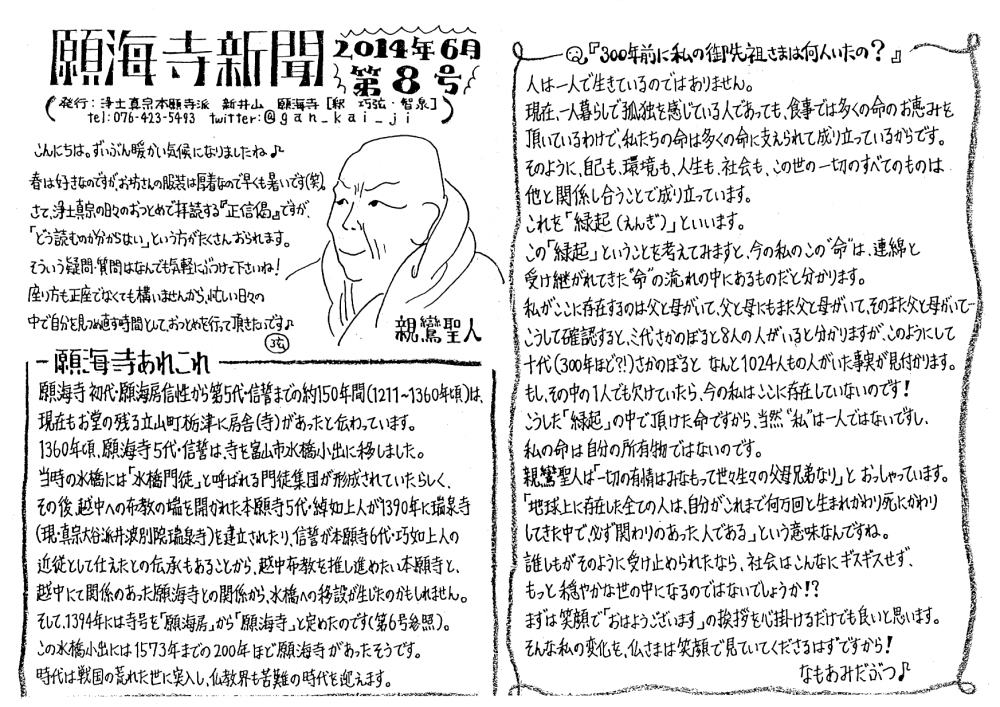 願海寺新聞
2014年6月
第8号
発行：浄土真宗本願寺派 新井山 願海寺［釈 巧弦・智泉］
tel:076-423-5493 twitter:@gan_kai_ji
こんにちは。ずいぶん暖かい気候になりましたね♪
春は好きなのですが、お坊さんの服装は厚着なので早くも暑いです(笑)。
さて、浄土真宗の日々のおつとめで拝読する『正信偈』ですが、
「どう読むのか分からない」という方がたくさんおられます。
そういう疑問・質問はなんでも気軽にぶつけて下さいね！
座り方も正座でなくても構いませんから、忙しい日々の
中で自分を見つめ直す時間として、おつとめを行って頂きたいです♪
弦
親鸞聖人
願海寺あれこれ
願海寺初代・願海房信性から第5代・信誓までの約150年間(1211～1360年頃)は、
現在もお堂の残る立山町栃津に房舎(寺)があったと伝わっています。
1360年頃、願海寺5代・信誓は、寺を富山市水橋小出に移しました。
当時の水橋には「水橋門徒」と呼ばれる門徒集団が形成されていたらしく、
その後、越中への布教の端を開かれた本願寺5代・綽如上人が1390年に瑞泉寺
(現・真宗大谷派井波別院瑞泉寺)を建立されたり、信誓が本願寺6代・巧如上人の
近従として仕えたとの伝承もあることから、越中布教を推し進めたい本願寺と、
越中にて関係のあった願海寺との関係から、水橋への移設が生じたのかもしれません。
そして、1394年には寺号を「願海房」から「願海寺」と定めたのです(第6号参照)。
この水橋小出には1573年までの200年ほど願海寺があったそうです。
時代は戦国の荒れた世に突入し、仏教界も苦難の時代を迎えます。
Q『300年前に私の御先祖さまは何人いたの？』
人は一人で生きているのではありません。
現在、一人暮らしで孤独を感じている人であっても、食事では多くの命のお恵みを
頂いているわけで、私たちの命は多くの命に支えられて成り立っているからです。
そのように、自己も、環境も、人生も、社会も、この世の一切のすべてのものは
他と関係し合うことで成り立っています。
これを「縁起(えんぎ)」といいます。
この「縁起」ということを考えてみますと、今の私のこの“命”は、連綿と
受け継がれてきた“命”の流れの中にあるものだと分かります。
私がここに存在するのは父と母がいて、父と母にもまた父と母がいて、そのまた父と母がいて…
こうして確認すると、三代さかのぼると8人の人がいると分かりますが、このようにして
十代(300年ほど?!)さかのぼると なんと1024人もの人がいた事実が見付かります。
もし、その中の1人でも欠けていたら、今の私はここに存在していないのです！
こうした「縁起」の中で頂けた命ですから、当然“私”は一人ではないですし、
私の命は自分の所有物ではないのです。
親鸞聖人は「一切の有情はみなもって世々生々の父母兄弟なり」と おっしゃっています。
「地球上に存在した全ての人は、自分がこれまで何万回と生まれかわり死にかわり
してきた中で、必ず関わりのあった人である」という意味なんですね。
誰しもがそのように受け止められたなら、社会はこんなにギスギスせず、
もっと穏やかな世の中になるのではないでしょうか!?
まずは笑顔で「おはようございます」の挨拶を心掛けるだけでも良いと思います。
そんな私の変化を、仏さまは笑顔で見ていてくださるはずですから！
なもあみだぶつ♪